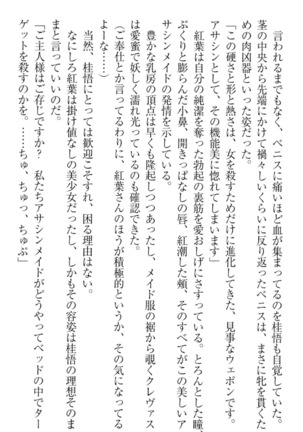 言われるまでもなく、ペニスに痛いほど血が集まってるのを桂悟も自覚していた。
茎の中央から先端にかけて禍々しいくらいに反り返ったペニスは、まさに牝を貫くた
めの肉凶器といった姿だった。
「この硬さと形と熱さは、女を殺すためだけに進化してきた、見事なウェポンです。
アサシンとして、その機能美に惚れてしまいます」
紅葉は自分の純潔を奪った勃起の裏筋を愛おしげにさすっている。とろんとした瞳、
ぷくりと膨らんだ小鼻、開きっぱなしの唇、紅潮した頰、そのすべてがこの美しいア
サシンメイドの発情を示している。
豊かな乳房の頂点は早くも隆起しつつあったし、メイド服の裾から覗くクレヴァス
は愛蜜で妖しく濡れ光っているのも確認できた。
（ご奉仕とか言ってるわりに、紅葉さんのほうが積極的というか、その気になってる
よーな……）
当然、桂悟にとっては歓迎こそすれ、困る理由はない。
なにしろ紅葉は掛け値なしの美少女だったし、しかもその容姿は桂悟の理想そのま
まと言っていいのだ。
「ご主人様はご存じですか？　私たちアサシンメイドがどうやってベッドの中でター
ゲットを殺すのかを。……ちゅ　ちゅっ、ちゅぷ」